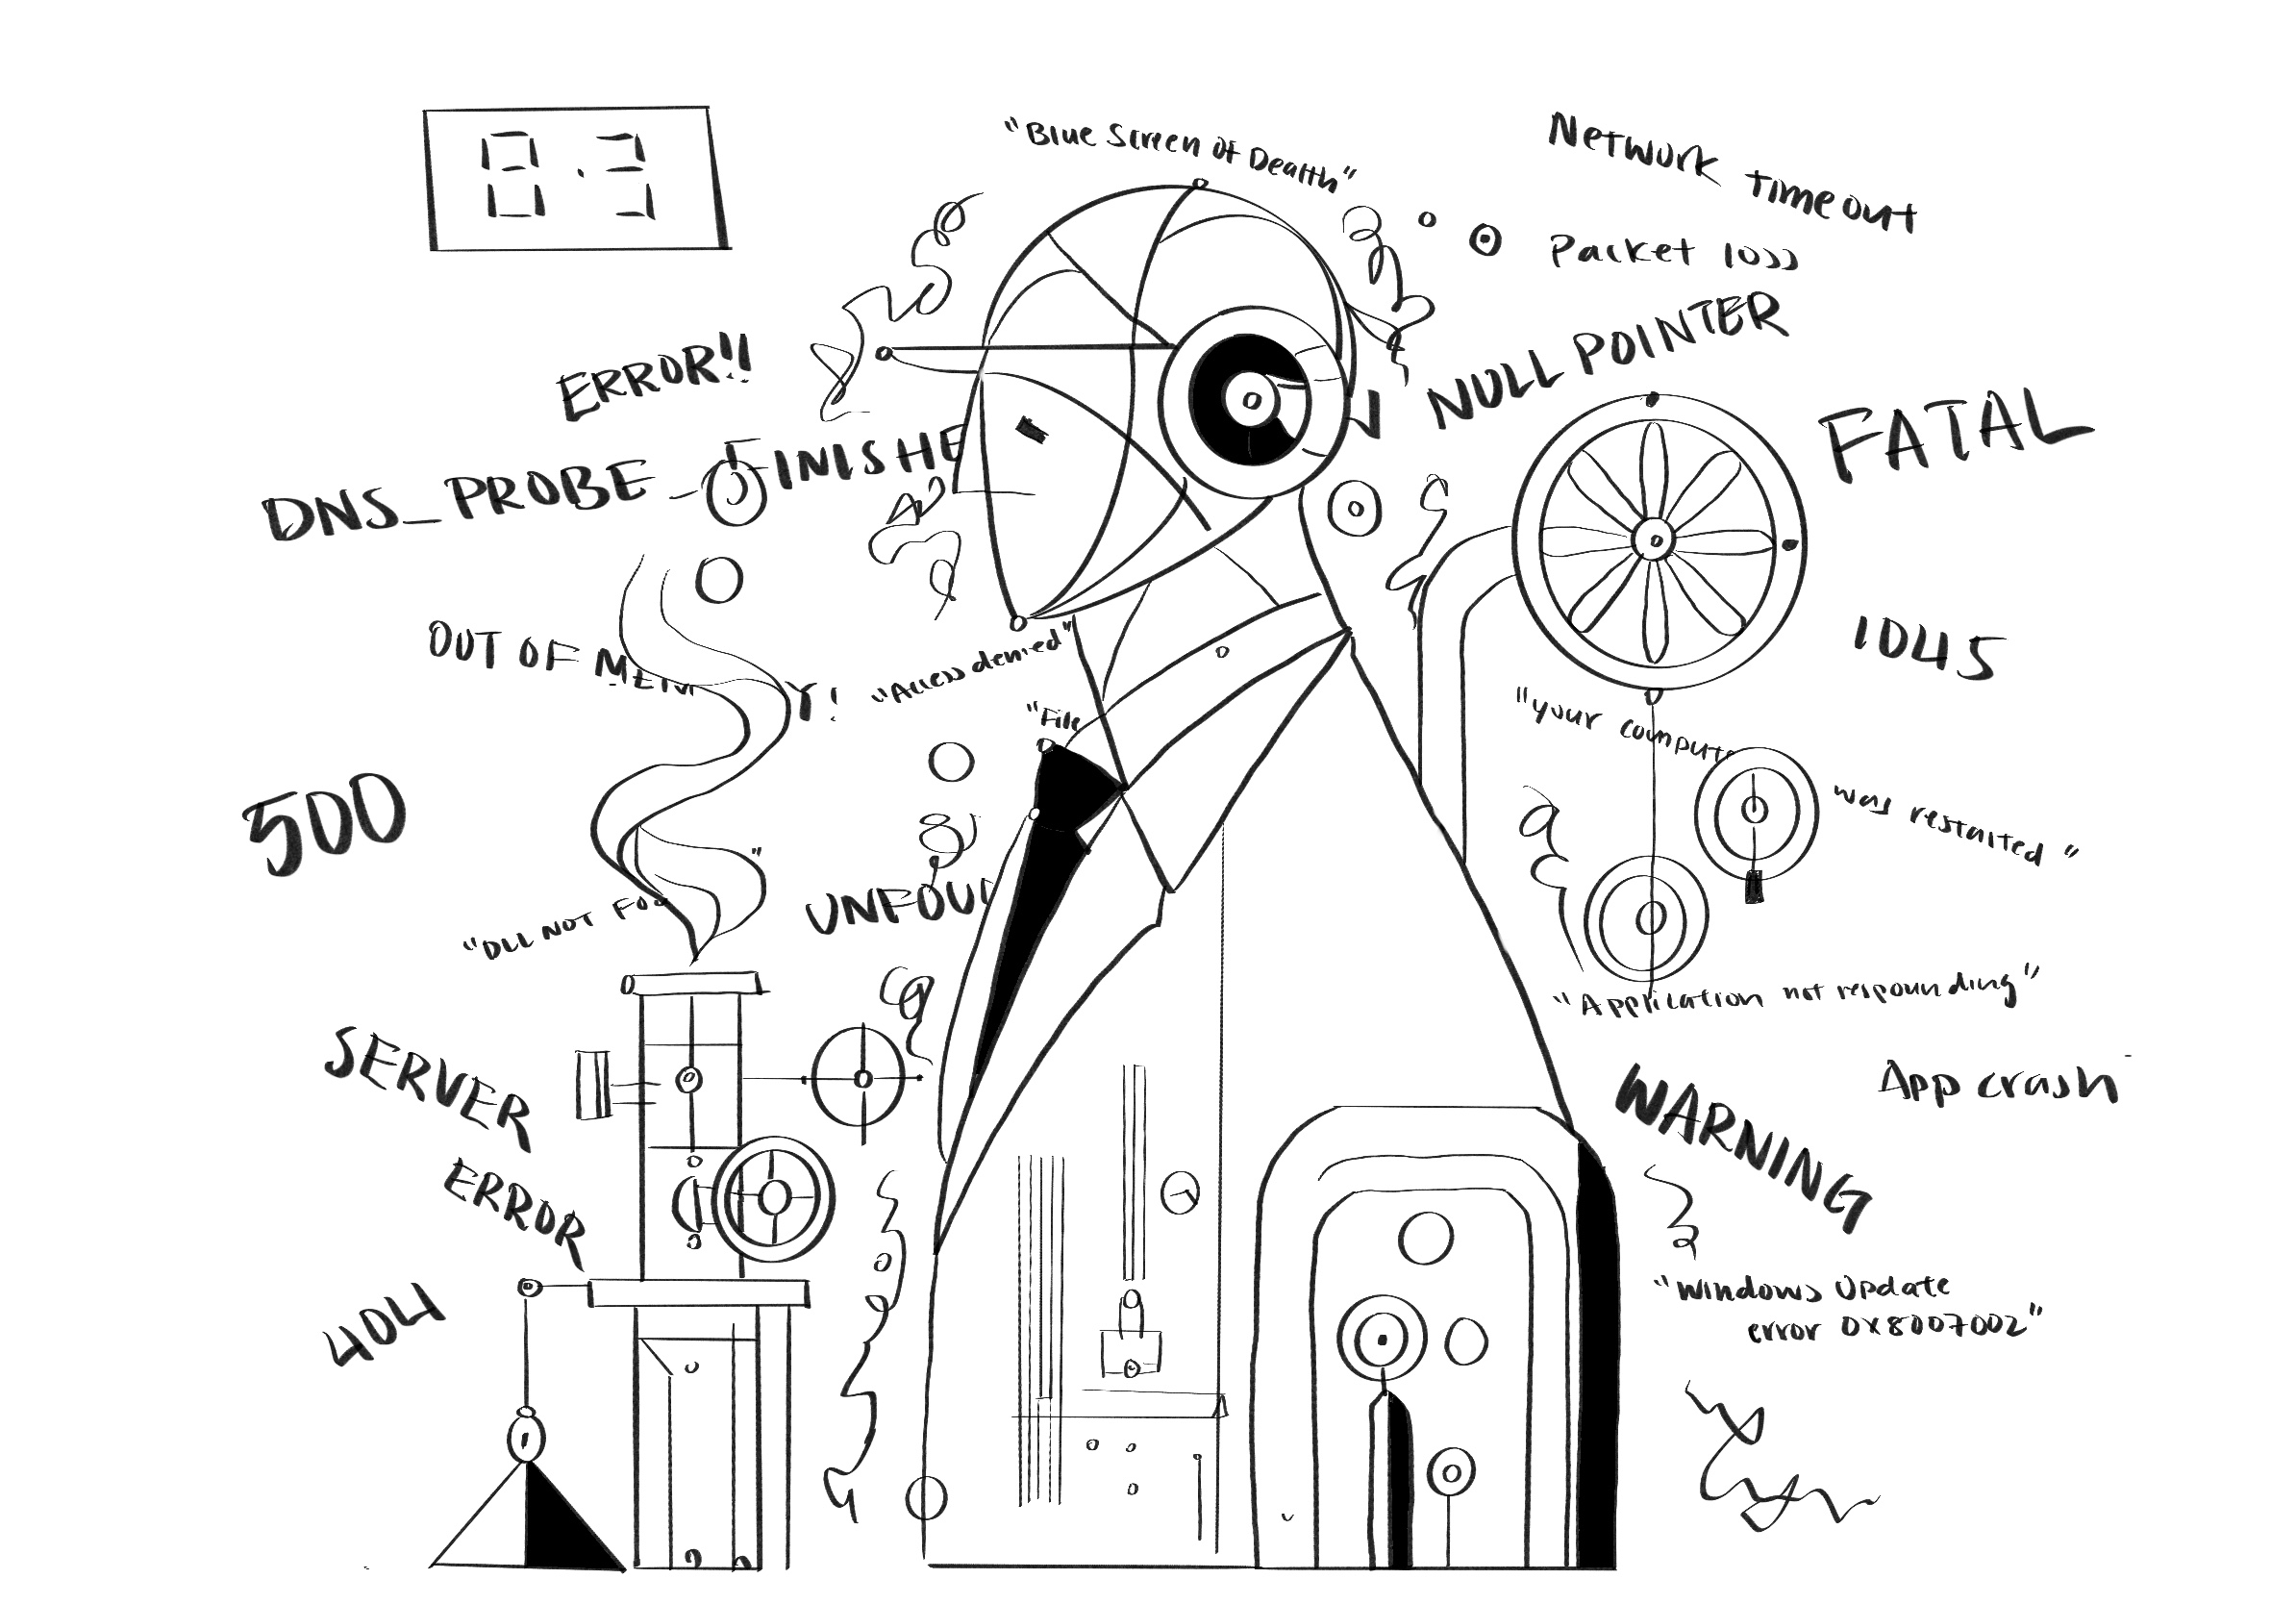 8.3
"Blue Screen of Death"
Network timeout
Packet loss
ERROR!!
NULL POINTER
FATAL
DNS_PROBE_FINISHE
OUT OF MEM Y!
"Access denied"
"File
1045
"your compute was restarted"
500
"DLL NOT FOU "
UNFOU
"Application not respounding"
SERVER
ERROR
WARNING
App crash
404
"Windows Update
error 0x8007002"